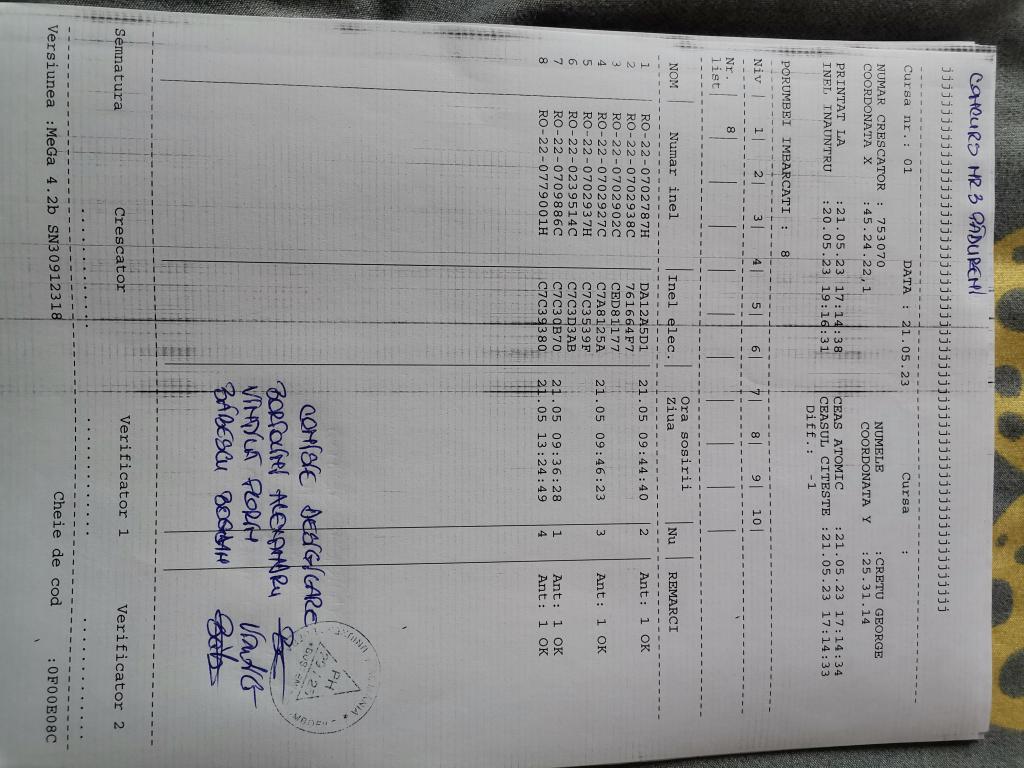 CONCURS NR 3 PĂDURENI
jjjjjjjjjjjjjjjjjjjjjjjjjjjjjjjjjjjjjjjjjjjjjjjjjjjjjjjjjjjj
Cursa nr.: 01 DATA : 21.05.23 Cursa :
NUMAR CRESCATOR : 753070 NUMELE :CRETU GEORGE
COORDONATA X :45.24.22,1 COORDONATA Y :25.31.14
PRINTAT LA :21.05.23 17:14:38 CEAS ATOMIC :21.05.23 17:14:34
INEL INAUNTRU :20.05.23 19:16:31 CEASUL CITESTE :21.05.23 17:14:33
Diff.: -1
PORUMBEI IMBARCATI : 8
Niv | 1| 2| 3| 4| 5| 6| 7| 8| 9| 10|
Nr | 8| | | | | | | | | |
list|
NOM | Numar inel | Inel elec. | Ora sosirii | Nu | REMARCI
Ziua
1 RO-22-0702787H DA12A5D1 21.05 09:44:40 2 Ant: 1 OK
2 RO-22-0702938C 761664F7
3 RO-22-0702902C CED81177
4 RO-22-0702927C C7A8125A 21.05 09:46:23 3 Ant: 1 OK
5 RO-22-0702937H C7C3539F
6 RO-22-0239514C C7C3D3AB
7 RO-22-0709886C C7C30B70 21.05 09:36:28 1 Ant: 1 OK
8 RO-22-0779001H C7C39380 21.05 13:24:49 4 Ant: 1 OK
COMISIE DESIGILARE
ALEXANDRU
FLORIN
BĂDESCU BOGDAN
PH
Semnatura Crescator Verificator 1 Verificator 2
Versiunea :MeGa 4.2b SN30912318 Cheie de cod :0F00E08C